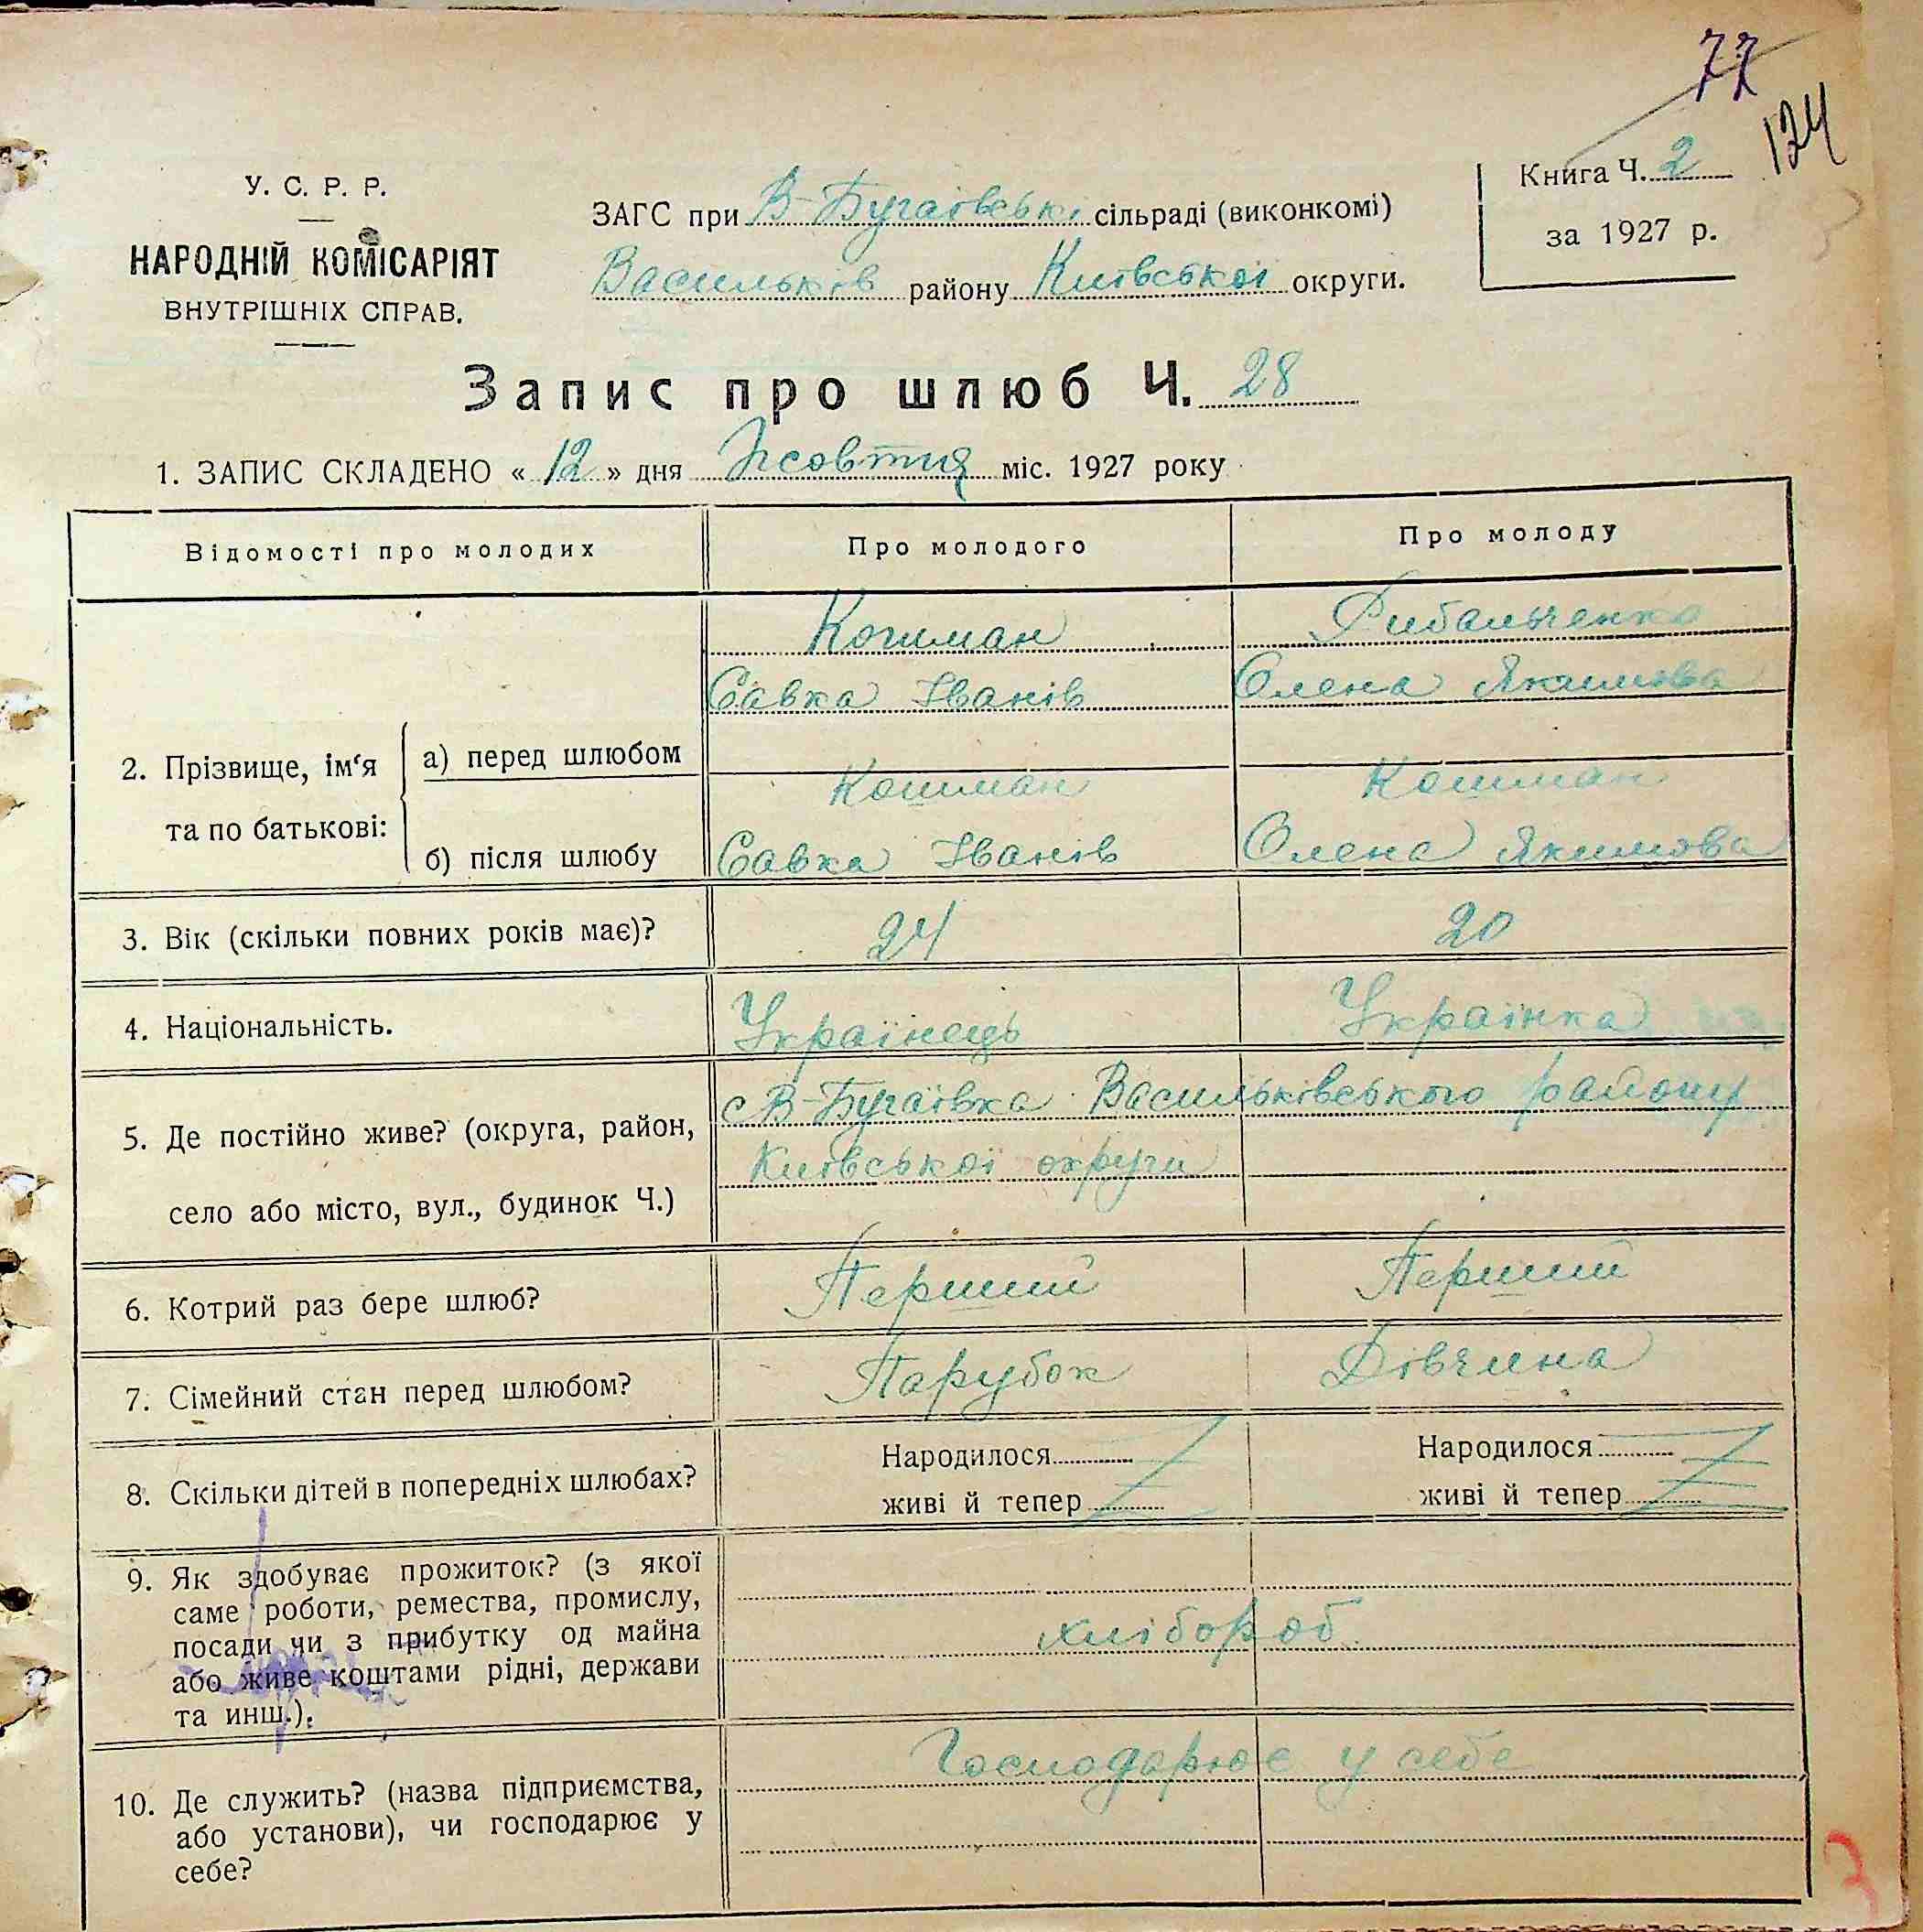 77
124
У. С. Р. Р.
НАРОДНІЙ КОМІСАРІЯТ
ВНУТРІШНІХ СПРАВ.
ЗАГС при В-Бугаївські сільраді (виконкомі)
Васильків району Київської округи.
Книга Ч. 2
за 1927 р.
Запис про шлюб Ч. 28
1. ЗАПИС СКЛАДЕНО « 12 » дня Жовтня міс. 1927 року
Відомості про молодих Про молодого Про молоду
Кошман Рибальченко
Савка Іванів Олена Якимова
2. Прізвище, ім‘я та по батькові: а) перед шлюбом
Кошман Кошман
б) після шлюбу Савка Іванів Олена Якимова
3. Вік (скільки повних років має)? 24 20
4. Національність. Українець Українка
5. Де постійно живе? (округа, район, с В-Бугаївка Васильківського району
село або місто, вул., будинок Ч.) Київської округи
6. Котрий раз бере шлюб? Перший Перший
7. Сімейний стан перед шлюбом? Парубок Дівчина
8. Скільки дітей в попередніх шлюбах? Народилося Народилося
живі й тепер живі й тепер
9. Як здобуває прожиток? (з якої
саме роботи, ремества, промислу,
посади чи з прибутку од майна хлібороб
або живе коштами рідні, держави
та инш.).
10. Де служить? (назва підприємства, Господарює у себе
або установи), чи господарює у
себе?
3